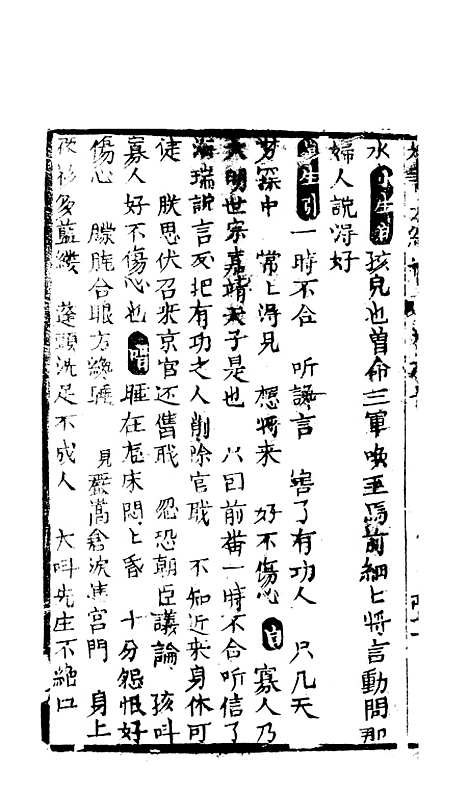 水 孩兒也曽命三軍喚至馬前細匕将言動問那
婦人說得好
生引 一時不合 听讒言 害了有功人 只几天
梦寐中 常匕得見 想将来 好不傷心 白 寡人乃
大明世宗嘉靖天子是也 只因前畨一時不合听信了
海瑞說言反把有功之人削除官职 不知近来身体可
徒 朕思伏召来京官还旧职 忽恐朝臣議論 孩叫
寡人好不傷心也 唱 睡在龙床悶匕昏 十分怨恨好
傷心 朦朧合眼方綫睡 見嚴嵩倉淚進宫門 身上
衣衫多藍縷 蓬頭洗足不成人 大叫先生不絶口